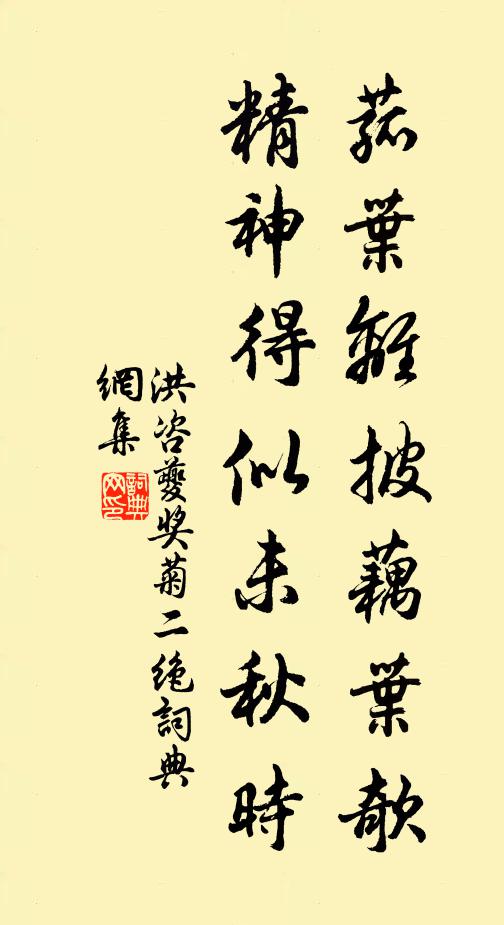 菰葉離披藕葉欹
精神得似未秋時
洪咨夔奬菊二绝詞典
網集
詞典
网印